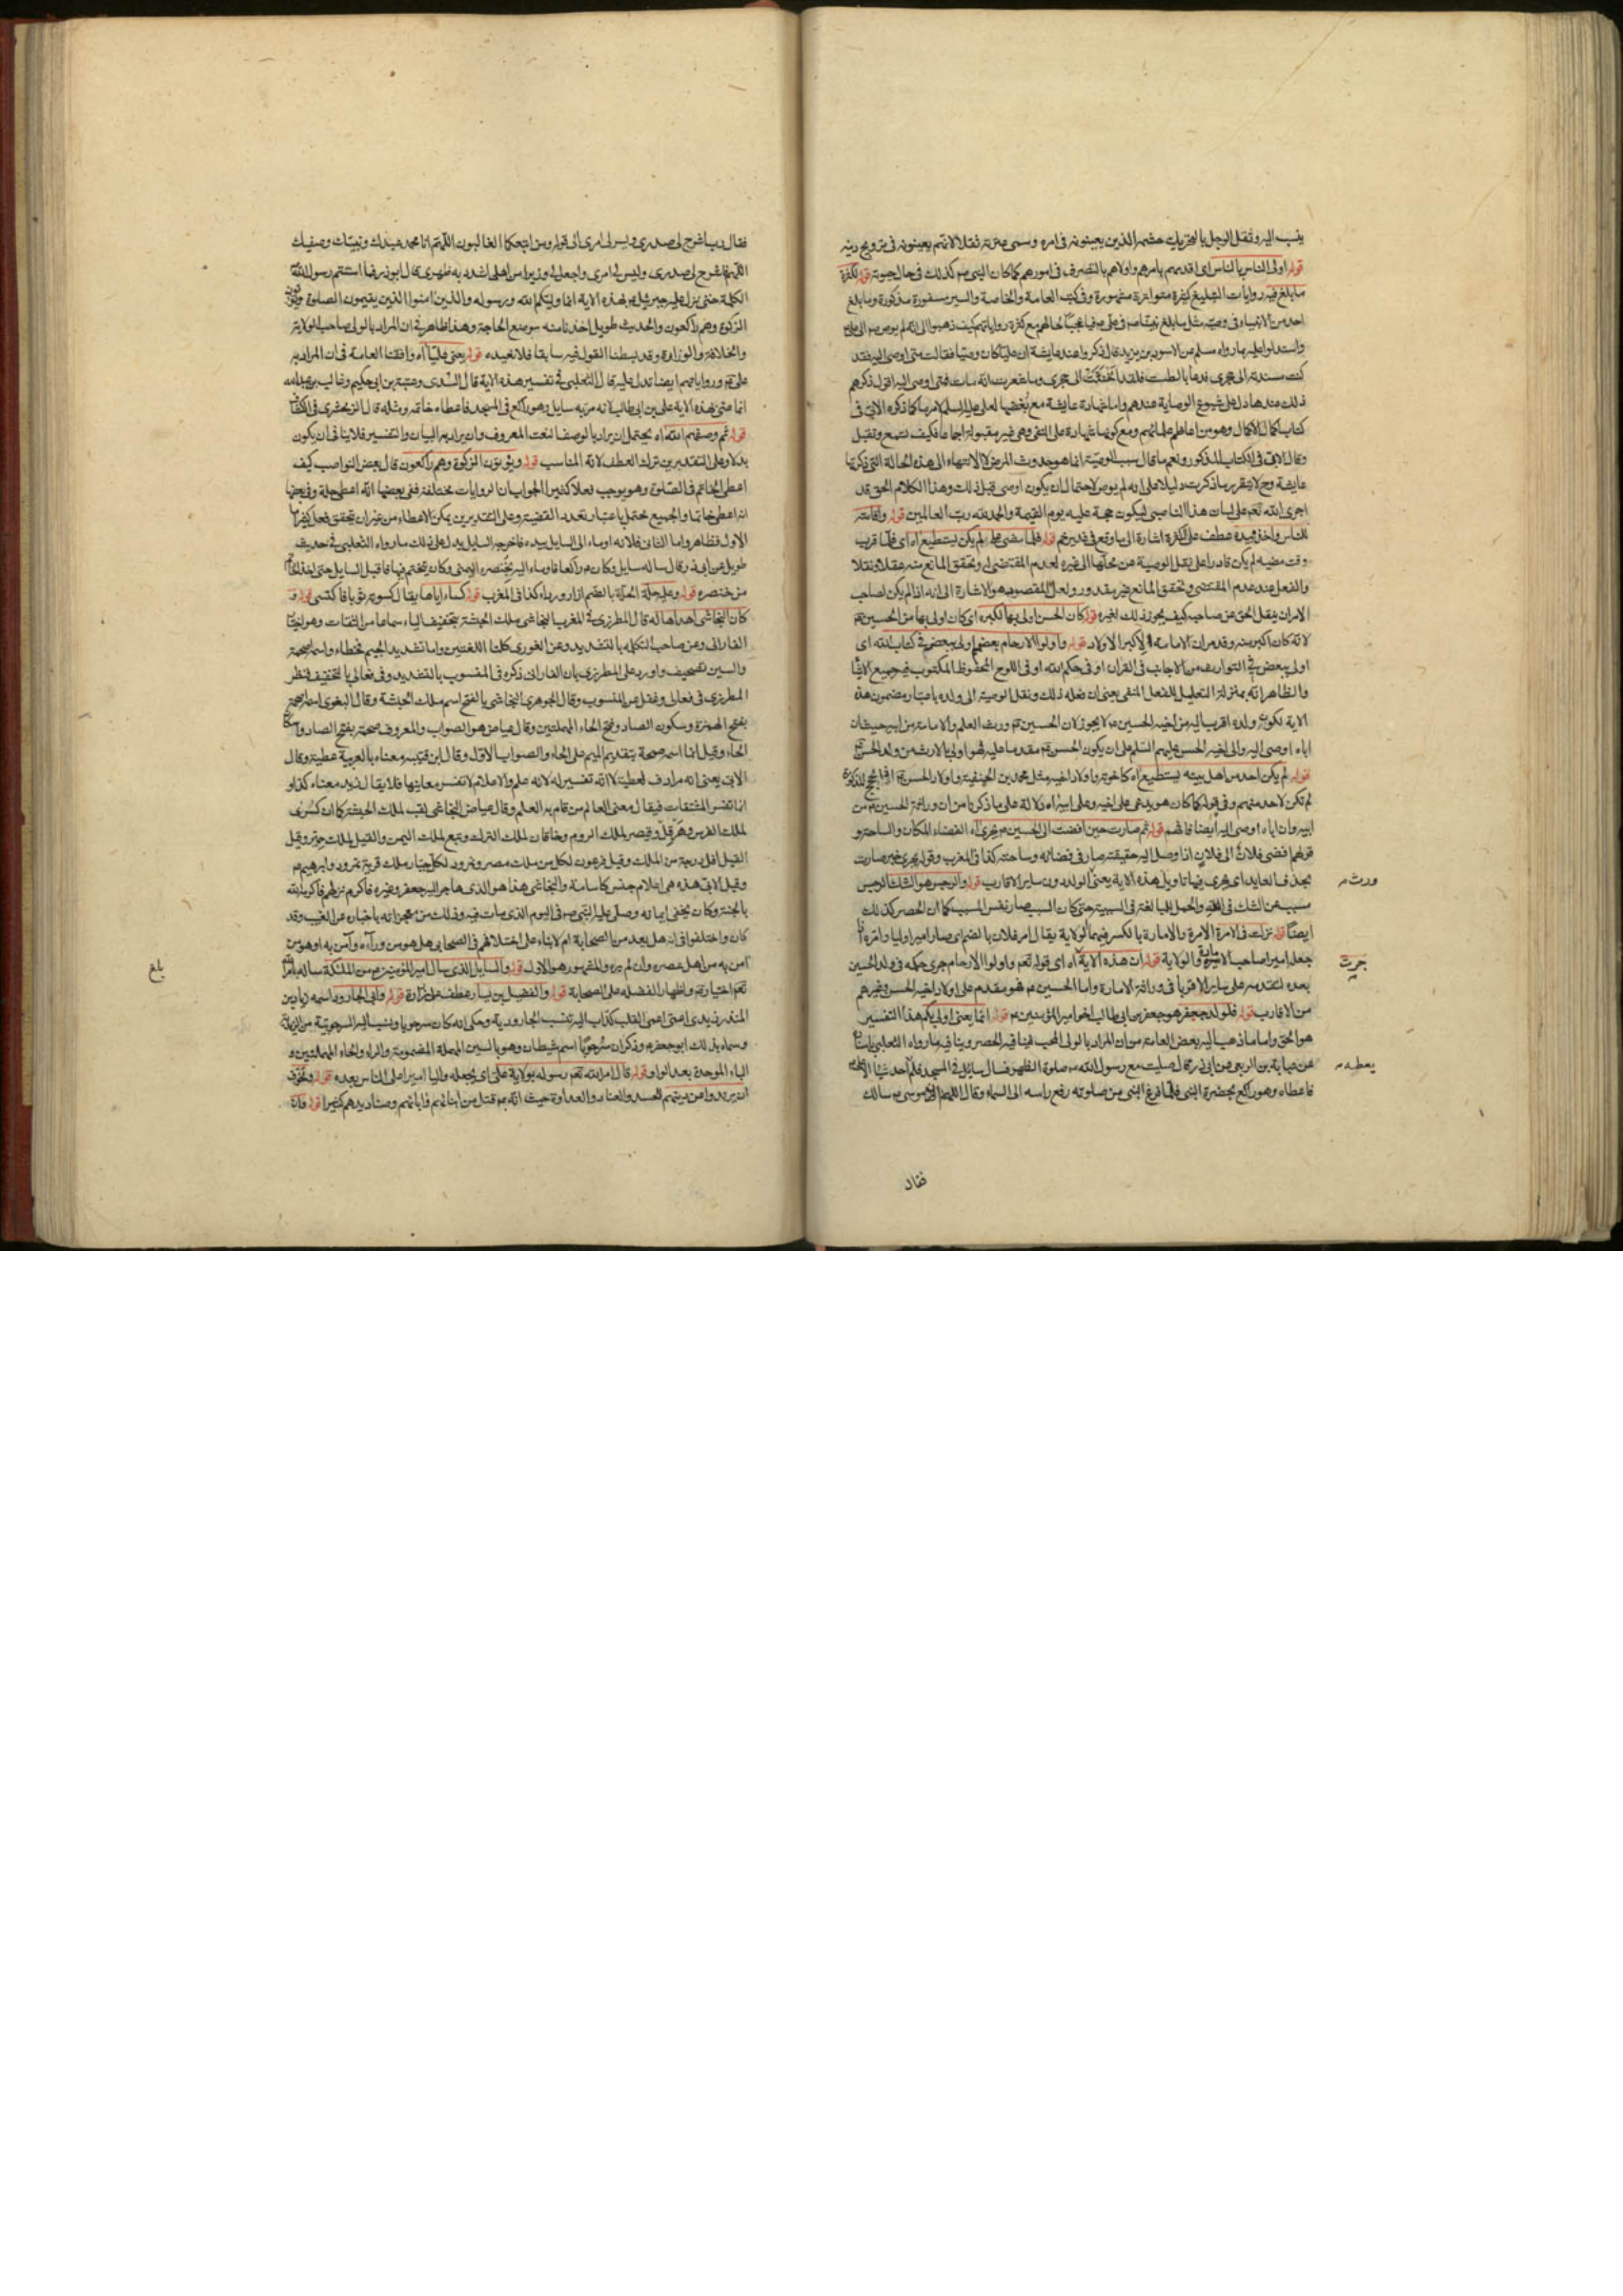 ينسب اليه وثقل الرجل بالتحريك حشمه الذين يعينونه في امره وسمى عترته ثقلا لانهم يعينونه في ترويج دينه
قوله اولى الناس بالناس اى اقدمهم بامرهم واولاهم بالتصرف في امورهم كما كان النبي ص كذلك في حال حيوته قوله لكثرة
ما بلغ فيه روايات التبليغ كثيرة متواترة مشهورة وفي كتب العامة والخاصة والسير مسفورة مذكورة وما بلغ
احد من الانبياء في وصيه مثل ما بلغ نبينا ص في علي ع فيا عجبا لحالهم مع كثرة رواياتهم كيف ذهبوا الى انه لم يوص ص الى علي ع
واستدلوا عليه بما رواه مسلم عن الاسود بن يزيد قال ذكروا عند عايشة ان عليا كان وصيا فقالت متى اوصى اليه فقد
كنت مسندته الى حجري فدعا بالطست فلقد انخنث الى حجري وما شعرت انه مات فمتى اوصى اليه اقول ذكرهم
ذلك عندها دل على شيوع الوصاية عندهم واما شهادة عايشة مع بغضها لعلي عليه السلم لامر ما كما ذكره الابي في
كتاب اكمال الاكمال وهو من اعاظم علمائهم ومع كونها شهادة على النفي وهي غير مقبولة اجماعا فكيف تسمع وتقبل
وقال الابي في الكتاب المذكور ونعم ما قال سبب الوصية انما هو حدوث المرض لا الانتهاء الى هذه الحالة التي ذكرتها
عايشة وح لا يتقرر ما ذكرت دليلا على انه لم يوص لاحتمال ان يكون اوصى قبل ذلك وهذا الكلام الحق قد
اجرى الله تعم على لسان هذا الناصبي ليكون حجة عليه يوم القيمة والحمد لله رب العالمين قوله واقامته
للناس واخذه بيده عطف على الكثرة اشارة الى ما وقع في غدير خم قوله فلما مضى علي لم يكن يستطيع اه اى فلما قرب
وقت مضيه لم يكن قادرا على نقل الوصية عن محلها الى غيره لعدم المقتضى له وتحقق المانع منه عقلا ونقلا
والفعل عند عدم المقتضى وتحقق المانع غير مقدور ولعل المقصود هو الاشارة الى انه اذا لم يكن لصاحب
الامر ان ينقل الحق عن صاحبه كيف يجوز ذلك لغيره قوله كان الحسن اولى بها لكبره اى كان اولى بها من الحسين ع
لانه كان اكبر منه وقد مر ان الامامة في الاكبر من الاولاد قوله واولوا الارحام بعضهم اولى ببعض في كتاب الله اى
اولى ببعض في التوارث من الاجانب في القران او في حكم الله او في اللوح المحفوظ المكتوب فيه جميع الاشياء
والظاهر انه بمنزلة التعليل للفعل المنفي يعني ان فعله ذلك ونقل الوصية الى ولده باعتبار مضمون هذه
الاية لكون ولده اقرب اليه من اخيه الحسين ع لا يجوز لان الحسين ع وريث العلم والامامة من ابيه حيث ان
اباه اوصى اليه والى اخيه الحسن عليهم السلم على ان يكون الحسن ع مقدما عليه فهو اولى بالارث من ولد الحسن ع
قوله لم يكن احد من اهل بيته يستطيع اه كاخوته واولاد اخيه مثل محمد بن الحنفية واولاد الحسن ع
لم تكن لاحد منهم وفي قوله كما كان هو يدعي على اخيه وعلى ابيه اه دلالة على ما ذكرنا من ان وراثة الحسين ع من
ابيه وان اباه اوصى اليه ايضا فافهم قوله ثم صارت حين افضت الى الحسين ع فجرى اه الفضاء المكان والساحة و
قولهم افضى فلان الى فلان اذا وصل اليه حقيقته صار في فضائه وساحته كذا في المغرب وقوله يجري خبر صارت
بحذف العايد اى يجرى فيها تاويل هذه الاية يعني الولد دون ساير الاقارب قوله والرجس هو الشك الرجس
مسبب عن الشك في الله والحمل للمبالغة في السببية حتى كان السبب صار نفس المسبب كما ان الحصر كذلك
ايضا قوله نزلت في الامرة الامرة والامارة بالكسر فيهما الولاية يقال امر فلان بالضم اى صار اميرا وليا وامره اذا
جعله اميرا صاحب الامارة والولاية قوله ان هذه الاية اه اى قوله تعم واولوا الارحام جرى حكمه في ولد الحسين
بعده لتقدمه على ساير الاقربا في وراثة الامارة واما الحسين ع فهو مقدم على اولاد اخيه الحسن وغيرهم
من الاقارب قوله فلو لد جعفر هو جعفر بن ابي طالب اخو امير المؤمنين ع قوله انما يعني اولى بكم هذا التفسير
هو الحق واما ما ذهب اليه بعض العامة من ان المراد بالولي المحب فينافيه الحصر وينافيه ما رواه الثعلبي باسناده
عن عباية بن الربعي عن ابي ذر قال صليت مع رسول الله ص صلوة الظهر فسال سايل في المسجد فلم احد شيئا
فاعطاه وهو راكع بحضرة النبي فلما فرغ النبي من صلوته رفع راسه الى السماء وقال اللهم ان موسى ع سالك
ورث
جرت
يعطه
فقال
فقال رب اشرح لي صدري ويسر لي امري الى قوله ومن اتبعكما الغالبون اللهم انا محمد عبدك ونبيك وصفيك
اللهم فاشرح لي صدري ويسر لي امري واجعل لي وزيرا من اهلي اشدد به ظهري قال ابو ذر فما استتم رسول الله
الكلمة حتى نزل عليه جبرئيل ع بهذه الاية انما وليكم الله ورسوله والذين امنوا الذين يقيمون الصلوة ويؤتون
الزكوة وهم راكعون والحديث طويل اخذنا منه موضع الحاجة وهذا ظاهر في ان المراد بالولي صاحب الولاية
والخلافة والوزارة وقد بسطنا القول فيه سابقا فلا نعيده قوله يعني عليا اه وافقنا العامة في ان المراد به
علي ع ورواياتهم ايضا تدل عليه قال الثعلبي في تفسير هذه الاية قال السدي وعتبة بن ابي حكيم وغالب بن عبد الله
انما عنى بهذه الاية علي بن ابي طالب لانه مر به سايل وهو راكع في المسجد فاعطاه خاتمه ومثله قال الزمخشري في الكشاف
قوله ثم وصفهم الله اه يحتمل ان يراد بالوصف النعت المعروف وان يراد به البيان والتفسير فلا ينافي ان يكون
بدلا وعلى التقديرين ترك العطف لانه المناسب قوله ويؤتون الزكوة وهم راكعون قال بعض النواصب كيف
اعطى الخاتم في الصلوة وهو يوجب فعلا كثيرا الجواب ان الروايات مختلفة ففي بعضها انه اعطى حلة وفي بعضها
انه اعطى خاتما والجميع محتمل باعتبار تعدد القضية وعلى التقديرين يمكن الاعطاء من غير ان يتحقق فعل كثير اما
الاول فظاهر واما الثاني فلانه اوماء الى السايل بيده فاخرجه السايل يدل على ذلك ما رواه الثعلبي في حديث
طويل عن ابي ذر قال ساله سايل وكان ع راكعا فاوماء اليه بخنصره اليمنى وكان يتختم فيها فاقبل السايل حتى اخذ الخاتم
من خنصره قوله وعليه حلة الحلة بالضم ازار ورداء كذا في المغرب قوله كساه اياها يقال كسوته ثوبا فاكتسى قوله و
كان النجاشي اهداها له قال المطرزي في المغرب النجاشي ملك الحبشة بتخفيف الياء سماعا من الثقات وهو اختيار
الفارابي وعن صاحب التكملة بالتشديد وعن الغوري كلتا اللغتين واما تشديد الجيم فخطاء واسمه اصحمة
والسين تصحيف واورد على المطرزي بان الفارابي ذكره في المنسوب بالتشديد وفي فعالي بالتخفيف فنظر
المطرزي في فعالى وغفل عن المنسوب وقال الجوهري النجاشي بالفتح اسم ملك الحبشة وقال البغوي اسمه اصحمة
بفتح الهمزة وسكون الصاد وفتح الحاء المهملتين وقال عياض هو الصواب والمعروف صحمة بفتح الصاد واسكان
الحاء وقيل انما اسمه صمحة بتقديم الميم على الحاء والصواب الاول وقال ابن قتيبه معناه بالعربية عطية وقال
الابي يعني انه مرادف لعطية لا انه تفسير له لانه علم والاعلام لا تفسر معانيها فلا يقال زيد معناه كذا و
انما تفسر المشتقات فيقال معنى العالم من قام به العلم وقال عياض النجاشي لقب لملك الحبشة كما ان كسرى
لملك الفرس وهرقل وقيصر لملك الروم وخاقان لملك الترك وتبع لملك اليمن والقيل لملك حمير وقيل
القيل اقل درجة من الملك وقيل فرعون لكل من ملك مصر ونمرود لكل جبار ملك قرية نمرود وابرهيم ع
وقيل الابي هذه هي اعلام جنس كاسامة والنجاشي هذا هو الذي هاجر اليه جعفر وغيره فاكرم نزلهم فاكرمه الله
بالجنة وكان يخفي ايمانه وصلى عليه النبي ص في اليوم الذي مات فيه وذلك من معجزاته باخباره عن الغيب وقد
كان واختلفوا في انه هل يعد من الصحابة ام لا بناء على اختلافهم في الصحابي هل هو من وراءه وآمن به او هو من
آمن به من اهل عصره وان لم يره والمشهور هو الاول قوله والسايل الذي سال امير المؤمنين ع من الملئكة ساله بامر الله
تعم اختيارا له واظهارا لفضله على الصحابة قوله والفضيل بن يسار عطف على زرارة قوله وابي الجارود اسمه زياد بن
المنذر زيدي اعمى اعمى القلب كذاب اليه تنسب الجارودية وحكى انه كان سرحوبا ونسب اليه السرحوبية من الزيدية
وسماه بذلك ابو جعفر ع وذكر ان سرحوبا اسم شيطان وهو بالسين المهملة المضمومة والراء والحاء المهملتين و
الباء الموحدة بعد الواو قوله قال امر الله تعم رسوله بولاية علي اى يجعله واليا اميرا على الناس بعده قوله وتخوف
ان يرتدوا عن دينهم للحسد والعناد والعداوة حيث انه ع قتل من ابنائهم وابائهم وصناديدهم كثيرا قوله فان
بلغ